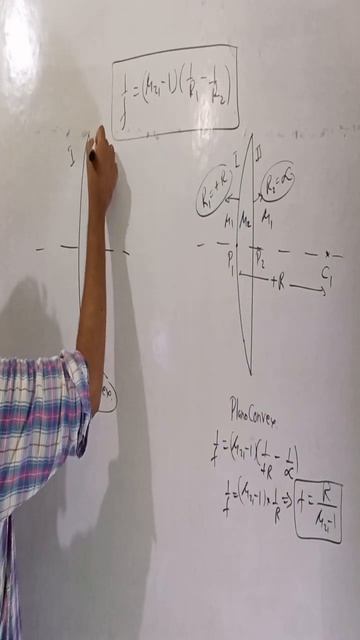 1/f = (μ₂₁-1)(1/R₁ - 1/R₂)
I
I II
R₁=+R R₂=∝
μ₁ μ₂ μ₁
P₁ P₂ C₁
+R
Plano Convex
1/f = (μ₂₁-1)(1/+R - 1/∝)
1/f = (μ₂₁-1)×1/R ⇒ f = R/μ₂₁-1